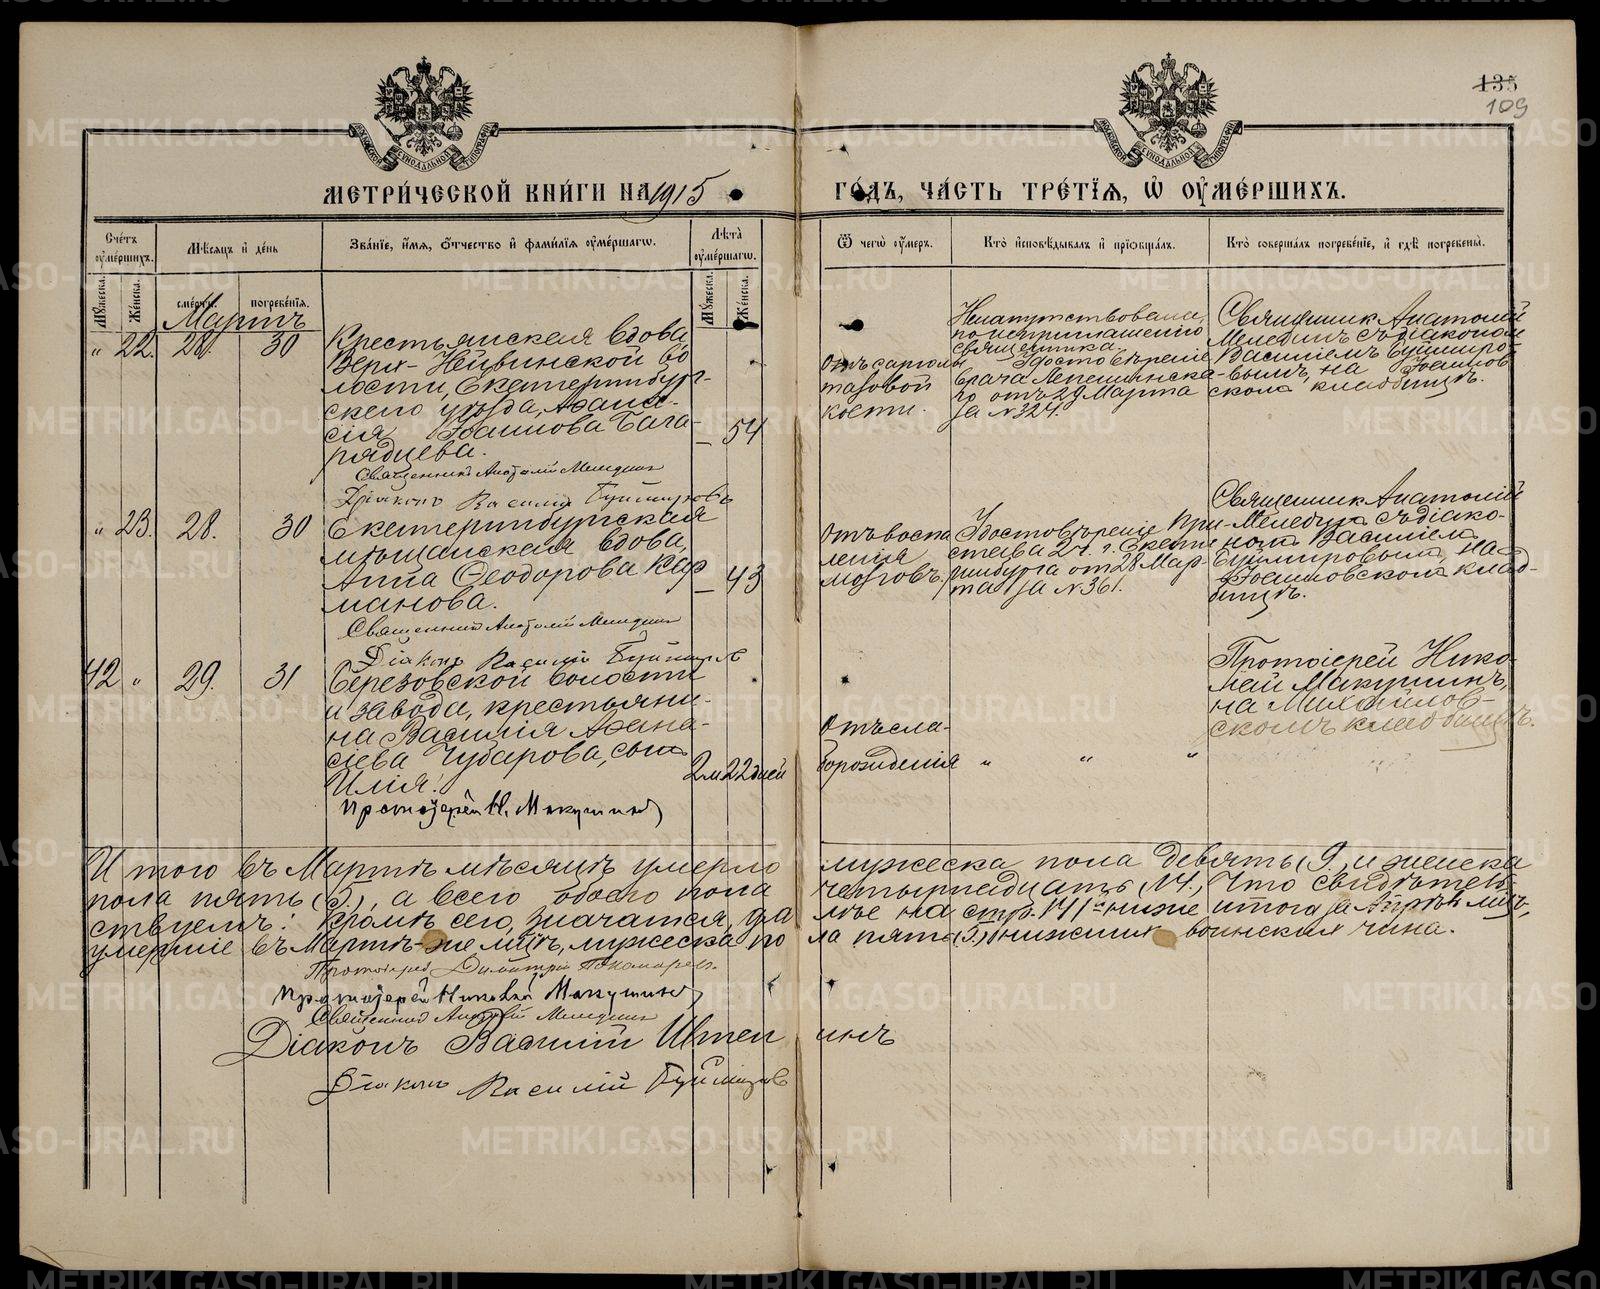 135
109
МЕТРИ́ЧЕСКОЙ КНИ́ГИ НА 1915 ГО́ДЪ, ЧА́СТЬ ТРЕ́ТЇѦ, Ѡ҆ ОУ҆МЕ́РШИХЪ.
Сче́тъ оу҆ме́ршихъ.
Мѣ́сяцъ и҆ де́нь
Зва́нїе, и҆́мя, ѻ҆́тчество и҆ фами́лїя оу҆ме́ршагѡ.
Лѣ́та оу҆ме́ршагѡ.
Ѿ чегѡ̀ оу҆́меръ.
Кто̀ и҆сповѣ́дывалъ и҆ прїѡбща́лъ.
Кто̀ соверша́лъ погребе́нїе, и҆ гдѣ̀ погребены̀.
Мꙋ́жеска.
Же́нска.
сме́рти.
погребе́нїя.
Мꙋ́жеска.
Же́нска.
Мартъ
„ 22. 28. 30
Крестьянская вдова
Верх-Нейвинской во
лости, Екатеринбург-
скаго уѣзда, Афана-
сія Іоаннова Бага-
рядцева.
— 54
Священникъ Анатолій Меледин
Діаконъ Василій Буймировъ
Отъ саркомы
тазовой
кости.
Ненапутствована,
по неприглашенію
священника.
Удостовѣреніе
врача Лепешинска-
го отъ 29 Марта
за № 324.
Священник Анатолій
Мелединъ съ діаконом
Василіемъ Буймиро-
вымъ, на Іоаннов
ском кладбищѣ.
„ 23. 28. 30
Екатеринбургская
мѣщанская вдова,
Анна Ѳеодорова Кар
манова.
— 43
Священник Анатолій Меледин
Діаконъ Василій Буймиров
Отъ воспа
ленія
мозговъ.
Удостовѣреніе При-
става 2 ч. г. Екате
ринбурга от 28 Мар-
та за № 361.
Священник Анатолій
Меледин съ діако-
ном Василіем
Буймировым на
Іоанновском клад-
бищѣ.
42 „ 29. 31
Березовской волости
и завода, крестьяни-
на Василія Афана-
сіева Чубарова, сын
Илія.
2 м 22 дней
Протоіерей Н. Макушинъ
Отъ сла-
борожденія
„ „ „
Протоіерей Нико-
лай Макушинъ,
на Михайлов-
скомъ кладбищѣ.
Итого въ Мартѣ мѣсяцѣ умерло мужеска пола девять (9), и женска
пола пять (5), а всего обоего пола четырнадцать (14), Что свидѣтель
ствуемъ: Кромѣ сего, значатся, да лѣе на стр. 141 ниже итога за Апрѣль мцъ,
умершіе въ Мартѣ-же мцѣ, мужеска по ла пять (5) нижних воинских чина.
Протоіерей Димитрій Пономарев.
Протоіерей Николай Макушинъ
Священник Анатолій Меледин
Діаконъ Василій Иттеп инъ
Діаконъ Василій Буймиров